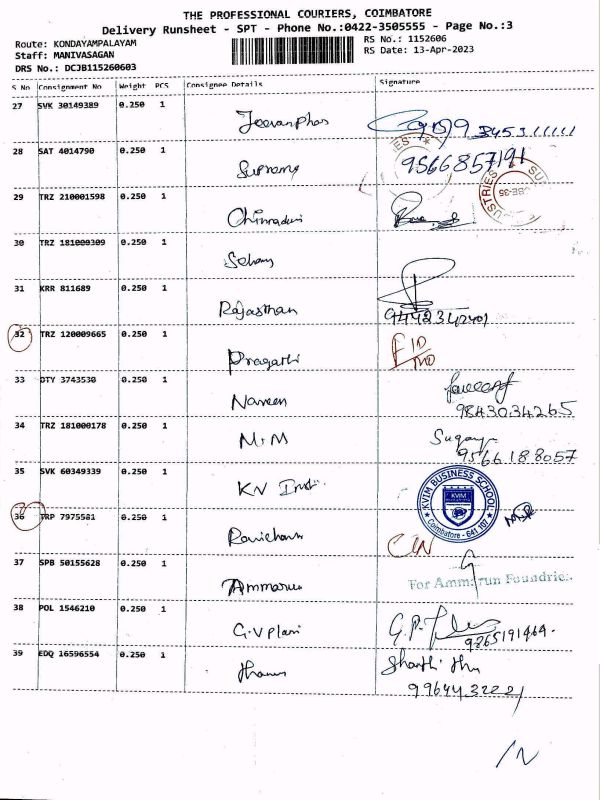 THE PROFESSIONAL COURIERS, COIMBATORE
Delivery Runsheet - SPT - Phone No.:0422-3505555 - Page No.:3
Route: KONDAYAMPALAYAM
RS No.: 1152606
Staff: MANIVASAGAN
RS Date: 13-Apr-2023
DRS No.: DCJB115260603
S No Consignment No Weight PCS Consignee Details Signature
27 SVK 30149389 0.250 1
28 SAT 4014790 0.250 1 Supreme 9566857191
29 TRZ 210001598 0.250 1
30 TRZ 181000309 0.250 1
31 KRR 811689 0.250 1 Rajasthan 9442342401
32 TRZ 120009665 0.250 1 Pragathi
33 DTY 3743530 0.250 1 Naveen
9843034265
34 TRZ 181000178 0.250 1 M.M
9566188057
35 SVK 60349339 0.250 1 KV Inst.
KVIM BUSINESS SCHOOL
KVIM
Coimbatore - 641 107
36 TRP 7975581 0.250 1
37 SPB 50155628 0.250 1 For Ammarun Foundries
38 POL 1546210 0.250 1 G.V plani
9865191464.
39 EDQ 16596554 0.250 1